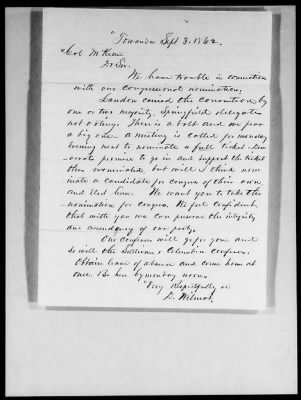 "Towanda Sept 3. 1862.
"Col McKean
Dr Sir.
We have trouble in connection
with our congressional nomination.
Landon carried the convention by
one or two majority, Springfield delegates
not voting. There is a bolt and we fear
a big one - a meeting is called for monday
evening next to nominate a full ticket. Dem-
ocrats promise to go in and support the ticket
thus nominated, but will I think nom-
inate a candidate for congress of their own
and elect him. We want you to take the
nomination for congress. We feel confident,
that with you we can preserve the integrity
and ascendancy of our party.
Our conferees will go for you and
so will the Sullivan & Columbia conferees.
Obtain leave of absence and come home at
once. Be here by monday noon.
Very Respectfully
D. Wilmot.